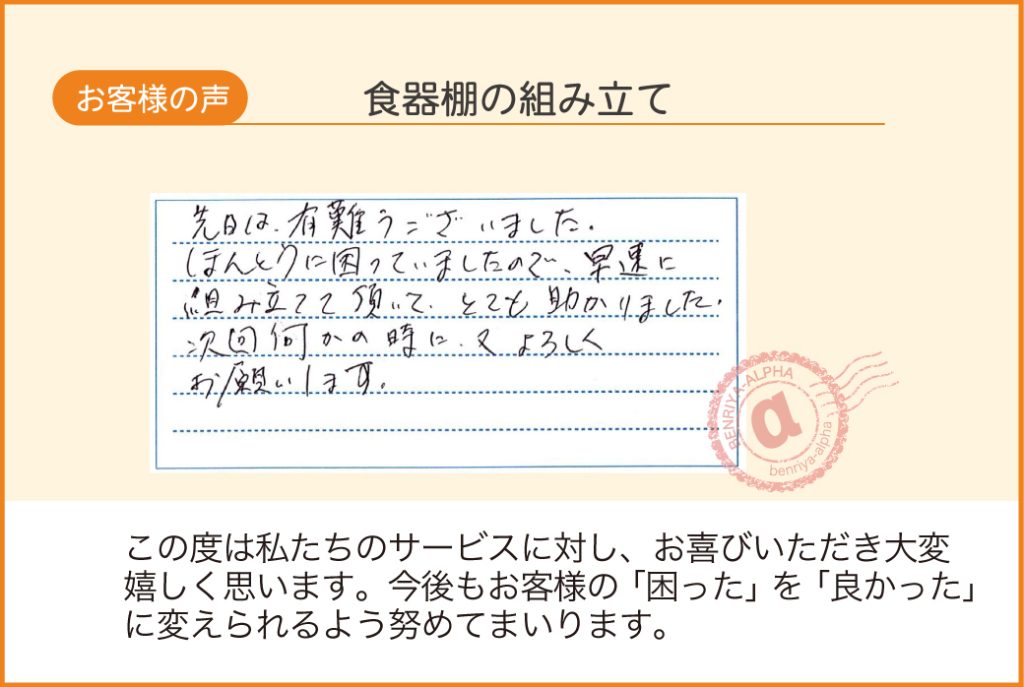 お客様の声
食器棚の組み立て
先日は、有難うございました。
ほんとうに困っていましたので、早速に
組み立てて頂いて、とても助かりました。
次回何かの時に、又よろしく
お願いします。
BENRIYA-ALPHA
α
benriya-alpha
この度は私たちのサービスに対し、お喜びいただき大変
嬉しく思います。今後もお客様の「困った」を「良かった」
に変えられるよう努めてまいります。